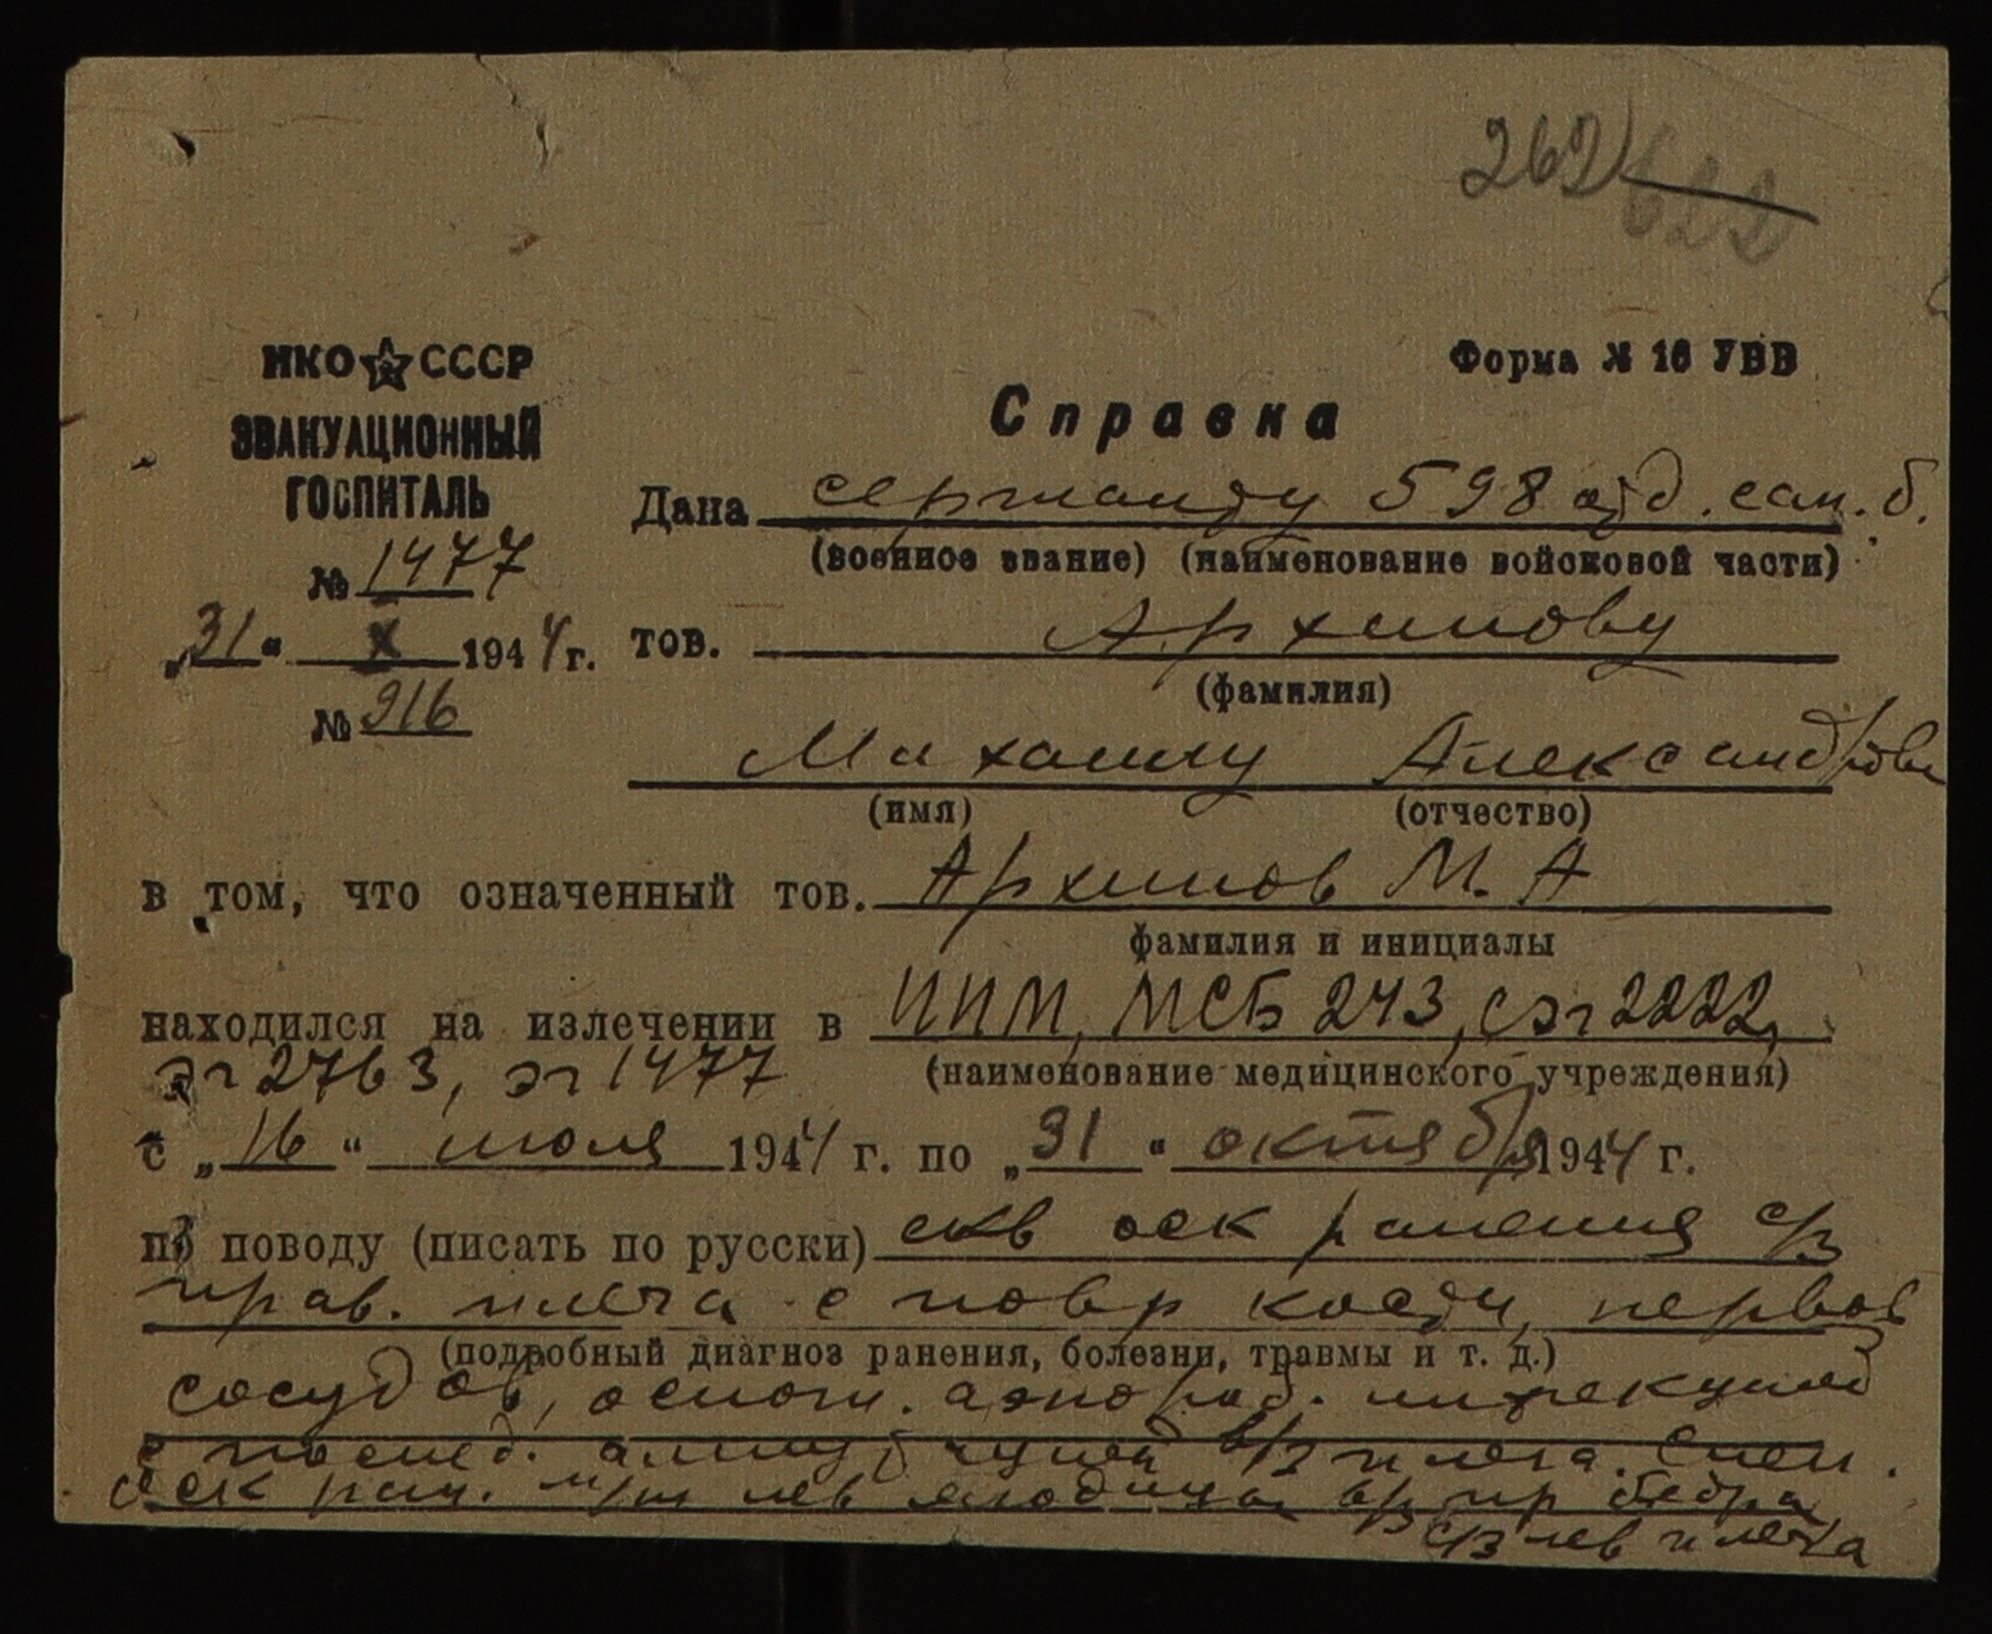 262 622
НКО СССР
ЭВАКУАЦИОННЫЙ
ГОСПИТАЛЬ
№ 1477
„31“ X 1944 г.
№ 916
Форма № 16 УВВ
Справка
Дана сержанту 598 отд. сап. б.
(военное звание) (наименование войсковой части)
тов. Архипову
(фамилия)
Михаилу Александрови
(имя) (отчество)
в том, что означенный тов. Архипов М. А
фамилия и инициалы
находился на излечении в ППМ, МСБ 243, СЭГ 2222,
эг 2763, эг 1477
(наименование медицинского учреждения)
с „16“ июля 1944 г. по „31“ октября 1944 г.
по поводу (писать по русски) скв оск ранения с/з
прав. плеча с повр кости, нервов
(подробный диагноз ранения, болезни, травмы и т. д.)
сосудов, ослож. анаэроб. инфекцией
с послед. ампутацией в/з плеча. Слеп.
оск ран. м/т лев ягодицы в/з пр бедра
с/з лев плеча